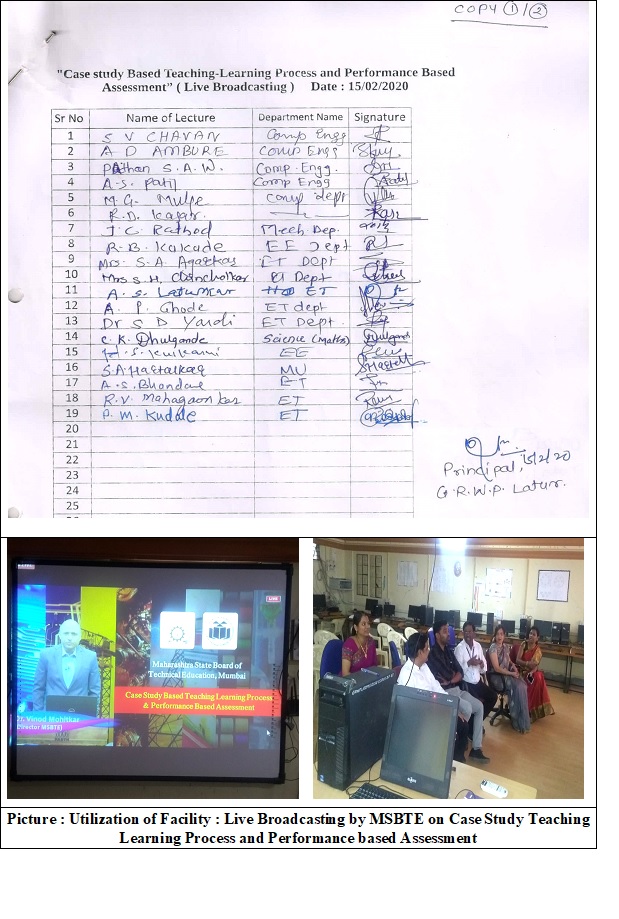 COPY ① / ②
"Case study Based Teaching-Learning Process and Performance Based
Assessment" ( Live Broadcasting ) Date : 15/02/2020
Sr No Name of Lecture Department Name Signature
1 S V CHAVAN Comp Engg
2 A D AMBURE Comp Engg
3 Pathan S.A.W. Comp. Engg.
4 A.S. Patil Comp Engg
5 M.G. Mulge Comp dept
6 R.D. Kagar.
7 J.C. Rathod Mech Dep.
8 R.B. Kakade EE Dept
9 Mrs. S.A. Agarkar ET Dept
10 Mrs S.H. Chincholkar EJ Dept
11 A.S. Laturkar ET
12 A. P. Ghode ET dept
13 Dr S D Yardi ET Dept
14 C.K. Dhulgande Science (Maths)
15 S. Kulkarni EE
16 S.A. Hastalkar MU
17 A.S. Bhondve ET
18 R.V. Mahagaonkar EJ
19 P.M. Kudale ET
20
21
22
23
24
25
15/2/20
Principal,
G.R.W.P. Latur.
LIVE
Maharashtra State Board of
Technical Education, Mumbai
Case Study Based Teaching Learning Process
& Performance Based Assessment
Dr. Vinod Mohitkar
(Director MSBTE)
Picture : Utilization of Facility : Live Broadcasting by MSBTE on Case Study Teaching
Learning Process and Performance based Assessment